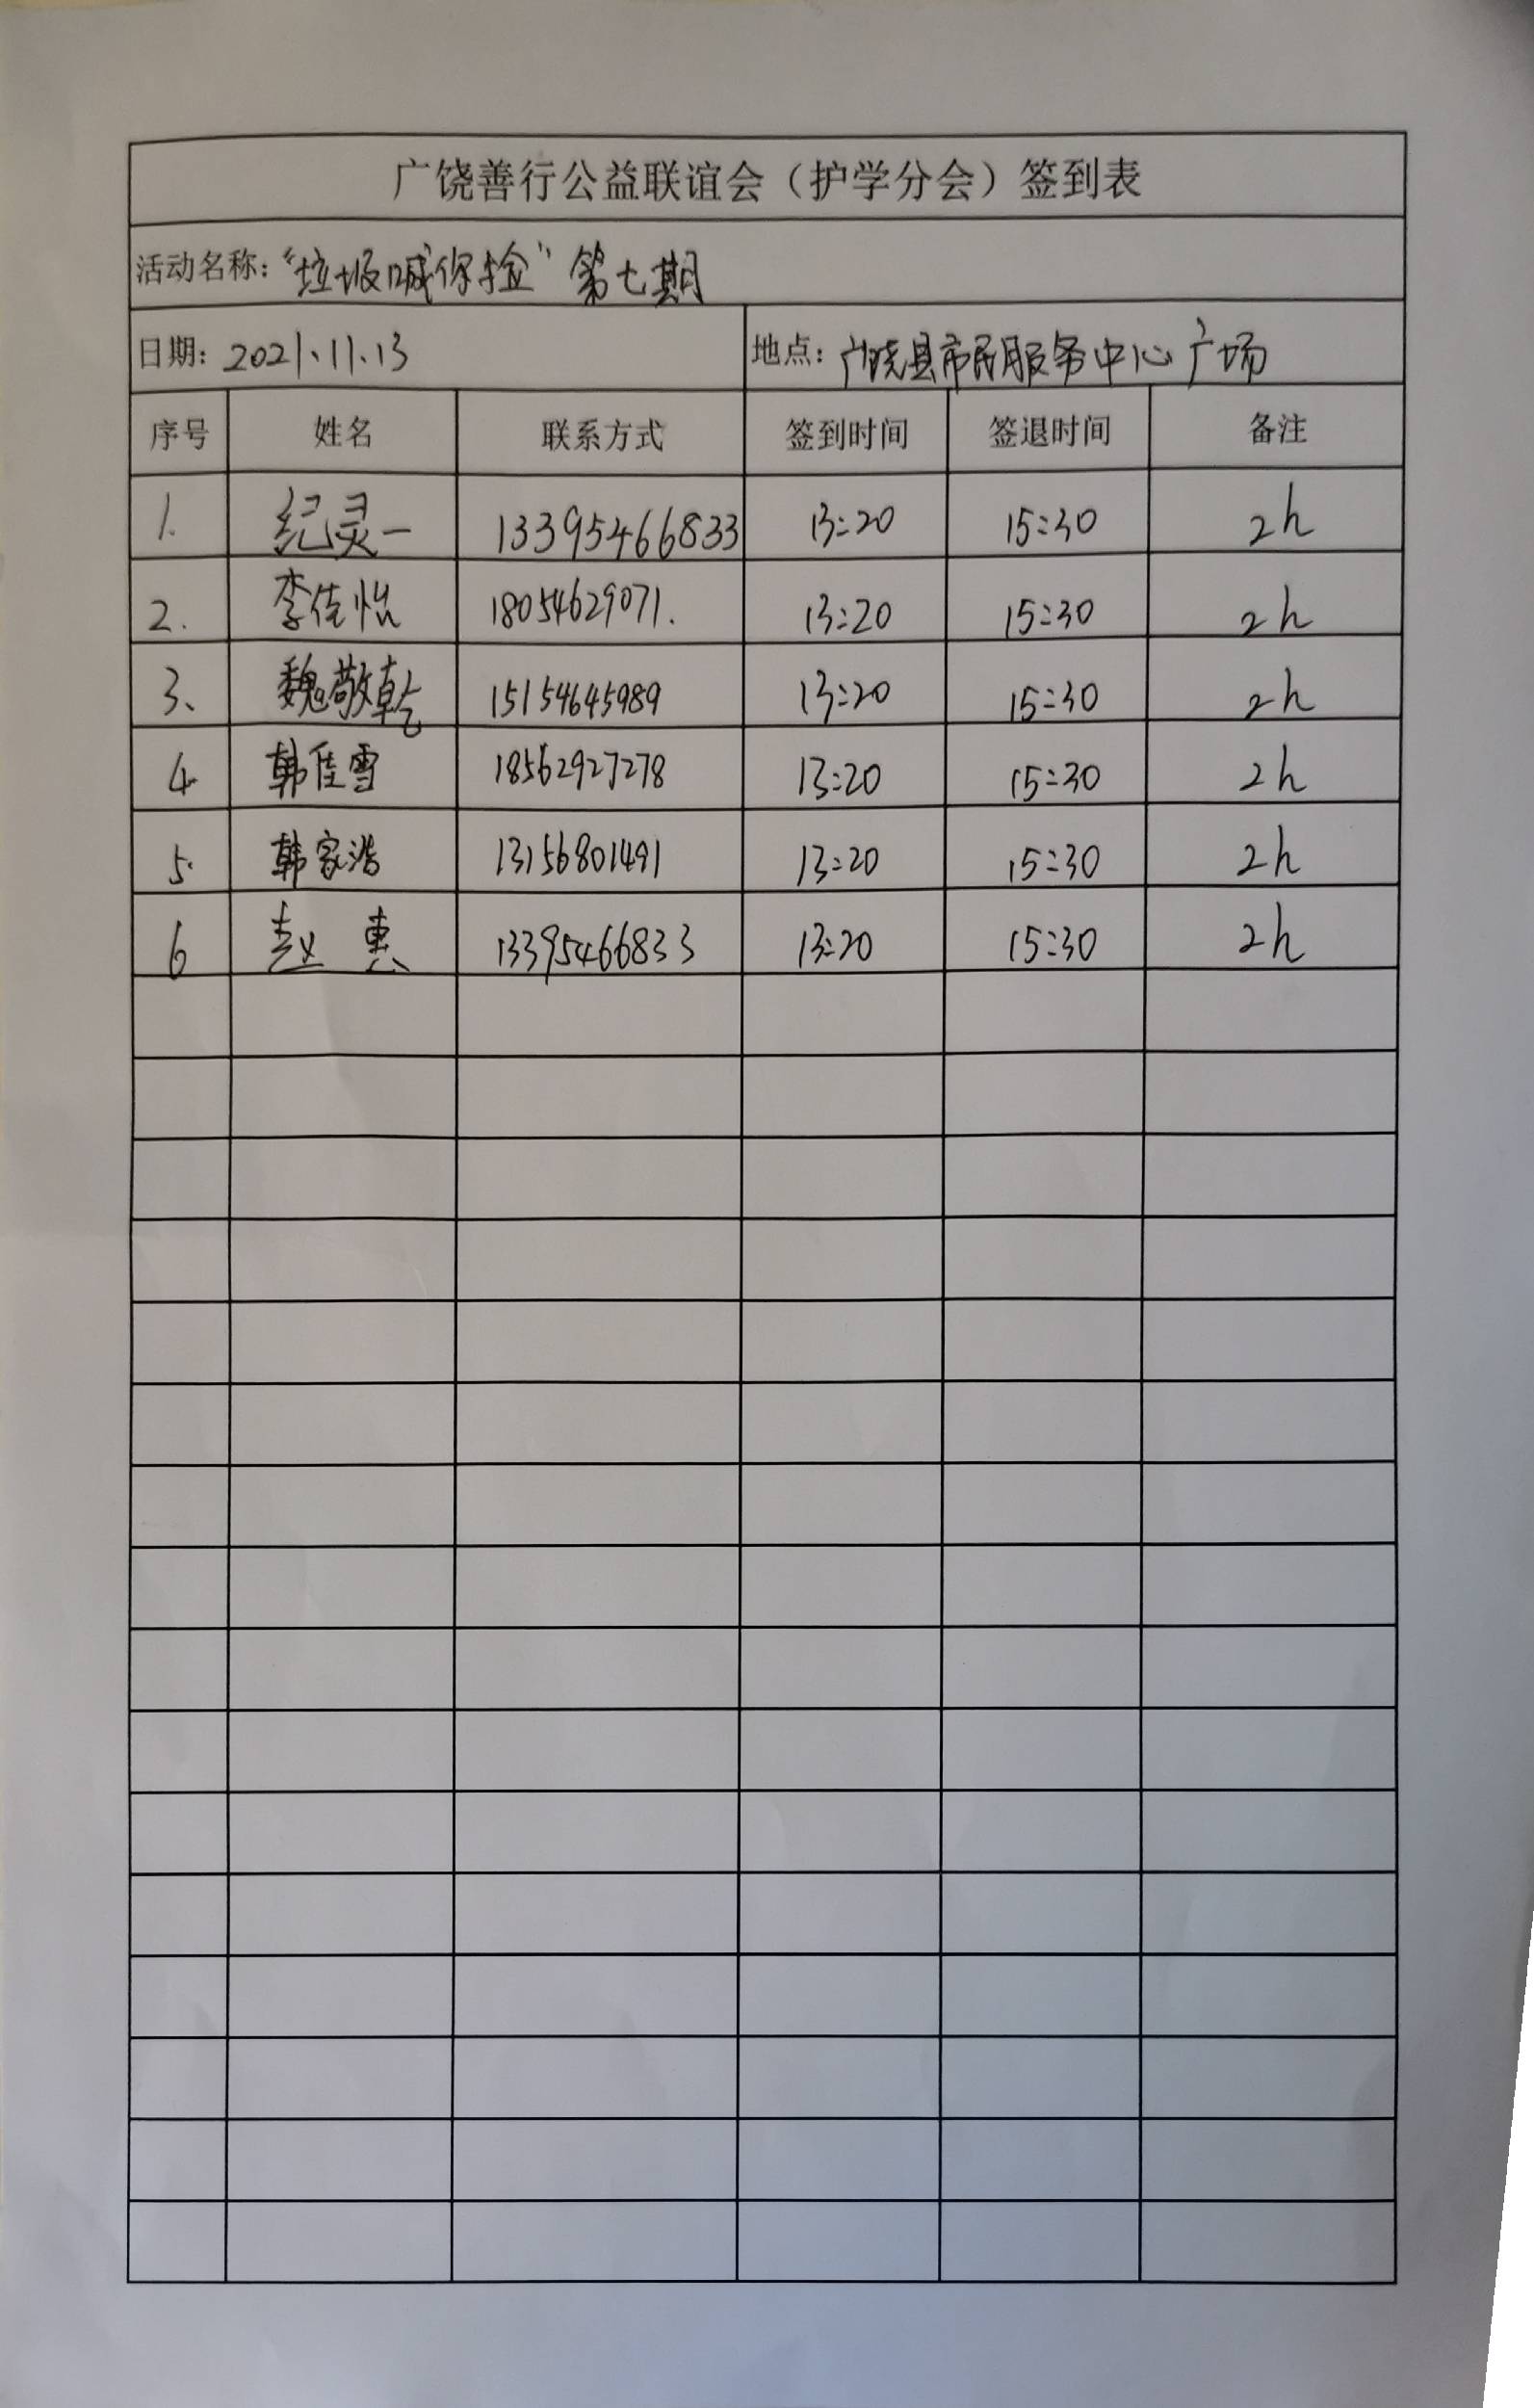 广饶善行公益联谊会（护学分会）签到表
活动名称：“垃圾喊你捡”第七期
日期：2021.11.13 地点：广饶县市民服务中心广场
序号 姓名 联系方式 签到时间 签退时间 备注
1. 纪灵一 13395466833 13:20 15:30 2h
2. 李佳怡 18054629071. 13:20 15:30 2h
3、 魏敬乾 15154645989 13:20 15:30 2h
4. 韩佳雪 18562927278 13:20 15:30 2h
5. 韩家浩 13156801491 13:20 15:30 2h
6 赵惠 13395466833 13:20 15:30 2h